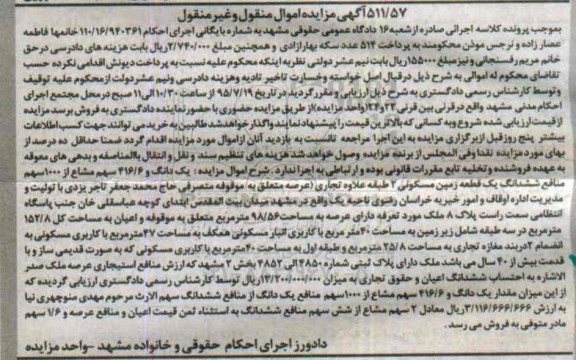 ۵۱۱/۵۷ آگهی مزایده اموال منقول وغیر منقول
بموجب پرونده کلاسه اجرائی صادره از شعبه ۱۶ دادگاه عمومی حقوقی مشهد به شماره بایگانی اجرای احکام ۱۱۰/۱۶/۹۴۰۳۶۱ خانمها فاطمه
عصار زاده و نرجس موذن محکومند به پرداخت ۵۱۴ عدد سکه بهارآزادی و همچنین مبلغ ۲/۷۴۰/۰۰۰ریال بابت هزینه های دادرسی در حق
خانم مریم رفسنجانی و نیز مبلغ ۱۵۵۰۰۰ ریال بابت نیم عشر دولتی نظر به اینکه محکوم علیه نسبت به پرداخت دیونش اقدامی نکرده حسب
تقاضای محکوم له اموالی به شرح ذیل در قبال اصل خواسته وخسارت تاخیر تادیه وهزینه دادرسی ونیم عشر دولت از محکوم علیه توقیف
و توسط کارشناس رسمی دادگستری به شرح ذیل ارزیابی و مقرر گردید در تاریخ ۹۵/۷/۱۹ از ساعت ۱۰/۳۰الی ۱۱ صبح در محل مجتمع اجرای
احکام مدنی مشهد واقع در قرنی بین قرنی ۲۲و۲۴(واحد مزایده)از طریق مزایده حضوری با حضور نماینده دادگستری به فروش برسد مزایده
از قیمت ارزیابی شده شروع و به کسانی که بالاترین قیمت را پیشنهاد نمایند واگذار خواهد شد طالبین به خرید می توانند جهت کسب اطلاعات
بیشتر پنج روز قبل از برگزاری مزایده به این اجرا مراجعه تا نسبت به بازدید آنان از اموال مورد مزایده اقدام گردد ضمنا حداقل ده درصد از
بهای مورد مزایده نقدا وفی المجلس از برنده مزایده وصول خواهد شد هزینه های تنظیم سند و نقل و انتقال بالمناصفه و بدهی های معوقه
به عهده فروشنده و تخلیه تابع مقررات قانونی بوده و ارتباطی به اجرا ندارد. شرح اموال مزایده : یک دانگ و ۴۱۶/۶ سهم مشاع از ۱۰۰۰سهم
منافع ششدانگ یک قطعه زمین مسکونی ۲ طبقه علاوه تجاری (عرصه متعلق به موقوفه متصرفی حاج محمد جعفر تاجر یزدی با تولیت و
مدیریت اداره اوقاف و امور خیریه خراسان رضوی ناحیه یک واقع در مشهد میدان بیت المقدس ابتدای کوچه عباسقلی خان جنب پاسگاه
انتظامی سمت راست پلاک ۸ ملک مورد تعرفه دارای عرصه به مساحت ۹۸/۵۶ مترمربع متعلق به موقوفه و اعیان به مساحت کل ۱۵۲/۸
مترمربع در سه طبقه شامل زیر زمین به مساحت ۴۰متر مربع با کاربری انبار مسکونی همکف به مساحت ۴۷مترمربع با کاربری مسکونی به
انضمام ۲دربند مغازه تجاری به مساحت ۲۵/۸ مترمربع و طبقه اول به مساحت ۴۰مترمربع با کاربری مسکونی که به صورت قدیمی ساز و با
قدمت بیش از ۴۰ سال می باشد ملک دارای پلاک ثبتی شماره ۴۸۵۰ الی ۴۸۵۲ بخش ۲ مشهد که ارزش منافع استیجاری عرصه ملک صدر
الاشاره به احتساب ششدانگ اعیان و حقوق تجاری به میزان ریال توسط کارشناس رسمی دادگستری ارزیابی گردیده که
از این میزان مقدار یک دانگ و ۴۱۶/۶ سهم مشاع از ۱۰۰۰سهم منافع یک دانگ از منافع ششدانگ سهم الارث مرحوم مهدی منوچهری نیا
به ارزش ۳/۱۱۶/۶۶۶/۶۶۶ریال معادل ۲ سهم مشاع از شش سهم منافع ششدانگ به استثناء ثمن قیمت اعیان و منافع عرصه و ۱/۶ سهم
مادر متوفی به فروش می رسد.
دادورز اجرای احکام حقوقی و خانواده مشهد -واحد مزایده